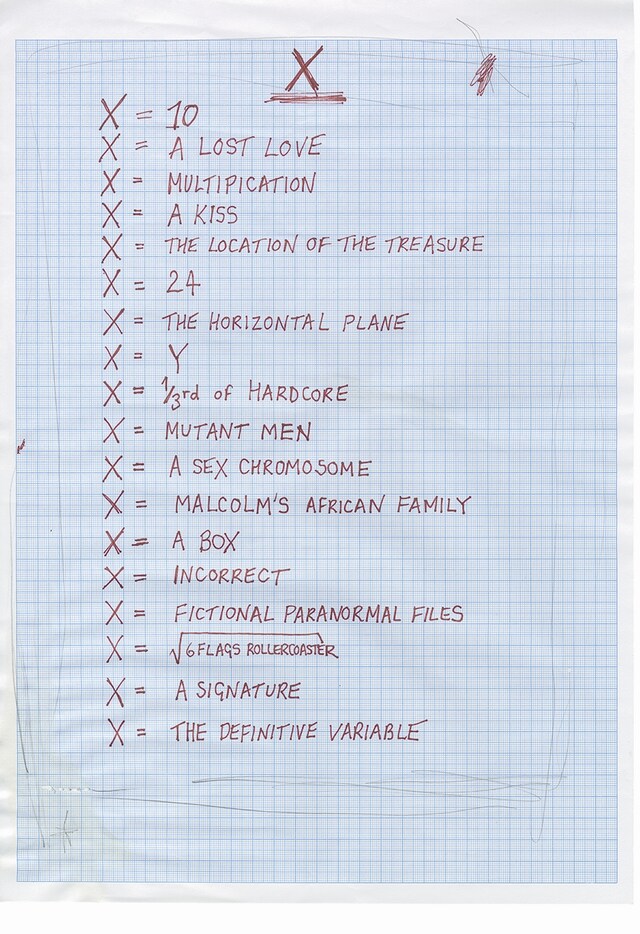 X
X = 10
X = A LOST LOVE
X = MULTIPICATION
X = A KISS
X = THE LOCATION OF THE TREASURE
X = 24
X = THE HORIZONTAL PLANE
X = Y
X = 1/3rd of HARDCORE
X = MUTANT MEN
X = A SEX CHROMOSOME
X = MALCOLM'S AFRICAN FAMILY
X = A BOX
X = INCORRECT
X = FICTIONAL PARANORMAL FILES
X = √6 FLAGS ROLLERCOASTER
X = A SIGNATURE
X = THE DEFINITIVE VARIABLE